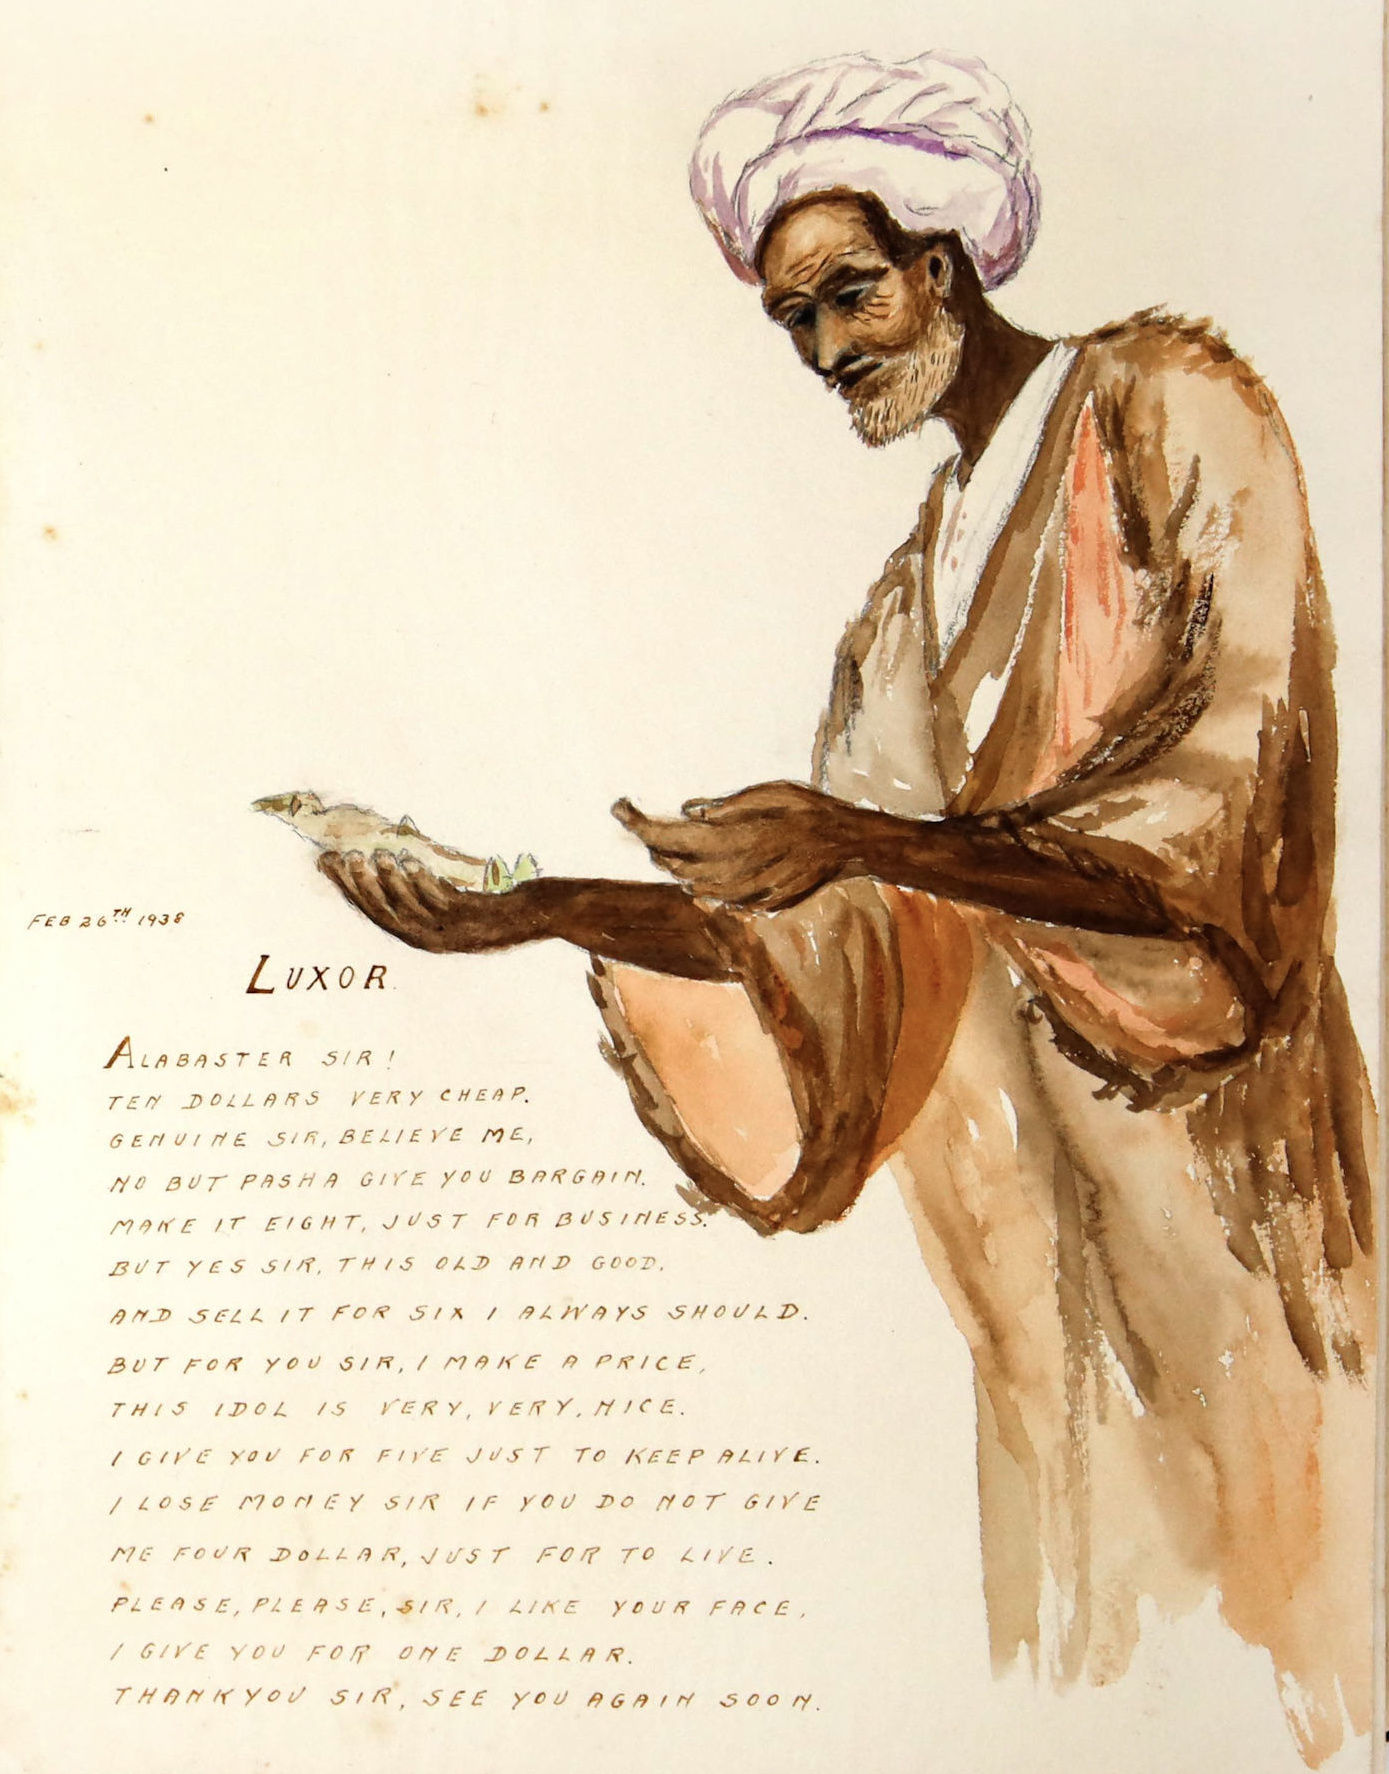 FEB 26TH 1938
LUXOR.
ALABASTER SIR!
TEN DOLLARS VERY CHEAP.
GENUINE SIR, BELIEVE ME,
NO BUT PASHA GIVE YOU BARGAIN.
MAKE IT EIGHT, JUST FOR BUSINESS.
BUT YES SIR, THIS OLD AND GOOD.
AND SELL IT FOR SIX I ALWAYS SHOULD.
BUT FOR YOU SIR, I MAKE A PRICE,
THIS IDOL IS VERY, VERY, NICE.
I GIVE YOU FOR FIVE JUST TO KEEP ALIVE.
I LOSE MONEY SIR IF YOU DO NOT GIVE
ME FOUR DOLLAR, JUST FOR TO LIVE.
PLEASE, PLEASE, SIR, I LIKE YOUR FACE,
I GIVE YOU FOR ONE DOLLAR.
THANKYOU SIR, SEE YOU AGAIN SOON.